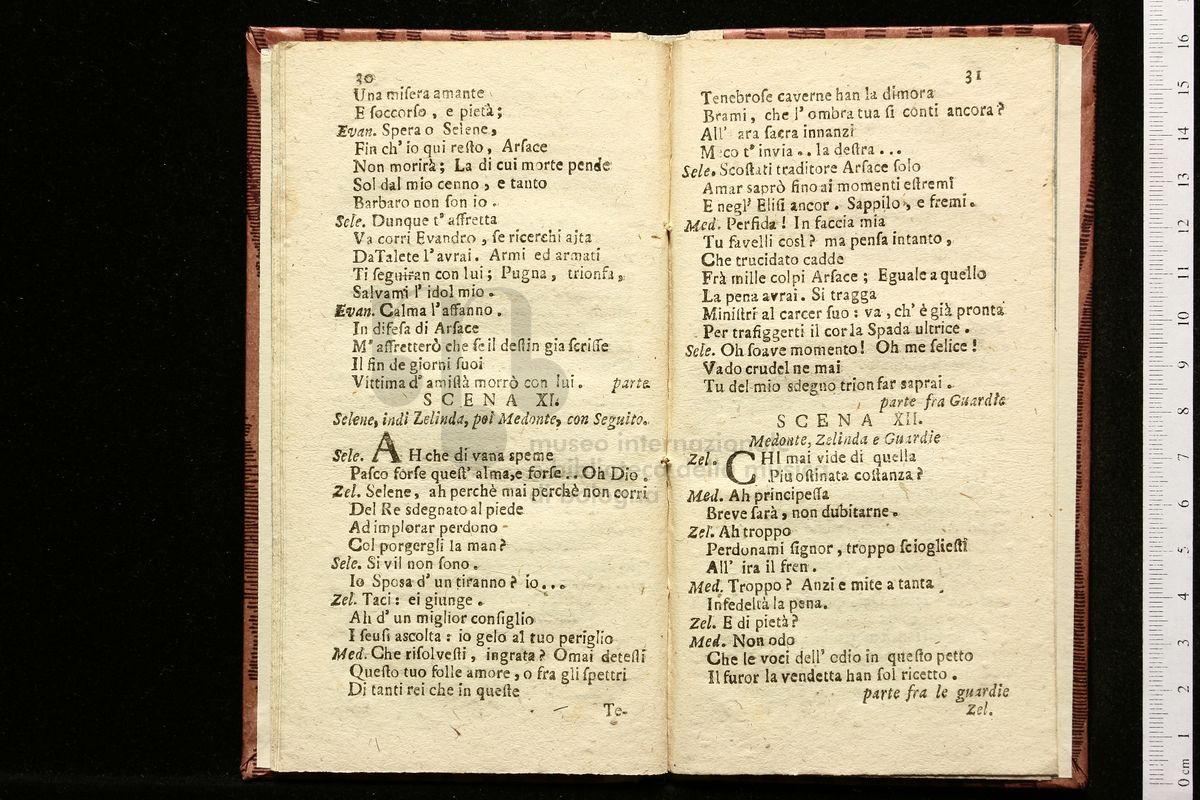 30
Una misera amante
E soccorso, e pietà;
Evan. Spera o Selene,
Fin ch' io qui resto, Arsace
Non morirà; La di cui morte pende
Sol dal mio cenno, e tanto
Barbaro non son io.
Sele. Dunque t' affretta
Va corri Evandro, se ricerchi aita
DaTalete l'avrai. Armi ed armati
Ti seguiran con lui; Pugna, trionfa,
Salvami l' idol mio.
Evan. Calma l'affanno.
In difesa di Arsace
M' affretterò che se il destin gia scrisse
Il fin de giorni suoi
Vittima d' amistà morrò con lui. parte
SCENA XI.
Selene, indi Zelinda, poi Medonte, con Seguito.
Sele. AH che di vana speme
Pasco forse quest' alma, e forse .. Oh Dio.
Zel. Selene, ah perchè mai perchè non corri
Del Re sdegnato al piede
Ad implorar perdono
Col porgergli la man?
Sele. Si vil non sono.
Io Sposa d' un tiranno? io...
Zel. Taci: ei giunge.
Ah d' un miglior consiglio
I sensi ascolta: io gelo al tuo periglio
Med. Che risolvesti, ingrata? Omai detesti
Questo tuo folle amore, o fra gli spettri
Di tanti rei che in queste
Te-
31
Tenebrose caverne han la dimora
Brami, che l' ombra tua si conti ancora?
All' ara sacra innanzi
Meco t' invia .. la destra ...
Sele. Scostati traditore Arsace solo
Amar saprò fino ai momenti estremi
E negl' Elisi ancor. Sappilo, e fremi.
Med. Perfida! In faccia mia
Tu favelli così? ma pensa intanto,
Che trucidato cadde
Frà mille colpi Arsace; Eguale a quello
La pena avrai. Si tragga
Ministri al carcer suo: va, ch' è già pronta
Per trafiggerti il cor la Spada ultrice.
Sele. Oh soave momento! Oh me felice!
Vado crudel ne mai
Tu del mio sdegno trionfar saprai.
parte fra Guardie
SCENA XII.
Medonte, Zelinda e Guardie
Zel. CHI mai vide di quella
Piu ostinata costanza?
Med. Ah principessa
Breve sarà, non dubitarne.
Zel. Ah troppo
Perdonami signor, troppo sciogliesti
All' ira il fren.
Med. Troppo? Anzi e mite a tanta
Infedeltà la pena.
Zel. E di pietà?
Med. Non odo
Che le voci dell' odio in questo petto
Il furor la vendetta han sol ricetto.
parte fra le guardie
Zel.
museo internazionale
e biblioteca della musica
di bologna
0 cm 1 2 3 4 5 6 7 8 9 10 11 12 13 14 15 16